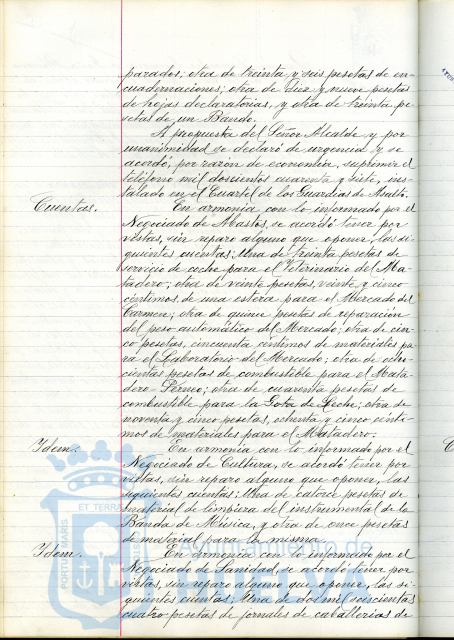 parados; otra de treinta y seis pesetas de en-
cuadernaciones; otra de diez y nueve pesetas
de hojas declaratorias, y otra de treinta pe-
setas de un Bando.
A propuesta del Señor Alcalde y por
unanimidad se declaró de urgencia y se
acordó, por razón de economía, suprimir el
teléfono mil doscientos cuarenta y siete, ins-
talado en el Cuartel de los Guardias de Asalto.
Cuentas. En armonía con lo informado por el
Negociado de Abastos, se acordó tener por
vistas, sin reparo alguno que oponer, las si-
guientes cuentas: Una de treinta pesetas de
servicio de coche para el Veterinario del Ma-
tadero; otra de veinte pesetas, veinte y cinco
céntimos de una estera para el Mercado del
Carmen; otra de quince pesetas de reparación
del peso automático del Mercado; otra de cin-
co pesetas, cincuenta céntimos de materiales pa-
ra el Laboratorio del Mercado; otra de ocho-
cientas pesetas de combustible para el Mata-
dero; otra de cuarenta pesetas de
combustible para la Gota de Leche; otra de
noventa y cinco pesetas, ochenta y cinco cénti-
mos de materiales para el Matadero.
Idem. En armonía con lo informado por el
Negociado de Cultura, se acordó tener por
vistas, sin reparo alguno que oponer, las
siguientes cuentas: Una de catorce pesetas de
material de limpieza del instrumental de la
Banda de Música, y otra de once pesetas
de material para la misma.
Idem. En armonía con lo informado por el
Negociado de Sanidad, se acordó tener por
vistas, sin reparo alguno que oponer, las si-
guientes cuentas: Una de dos mil seiscientas
cuatro pesetas de jornales de caballerías de
PORTUS MARIS ET TERRAE
Ayuntamiento de